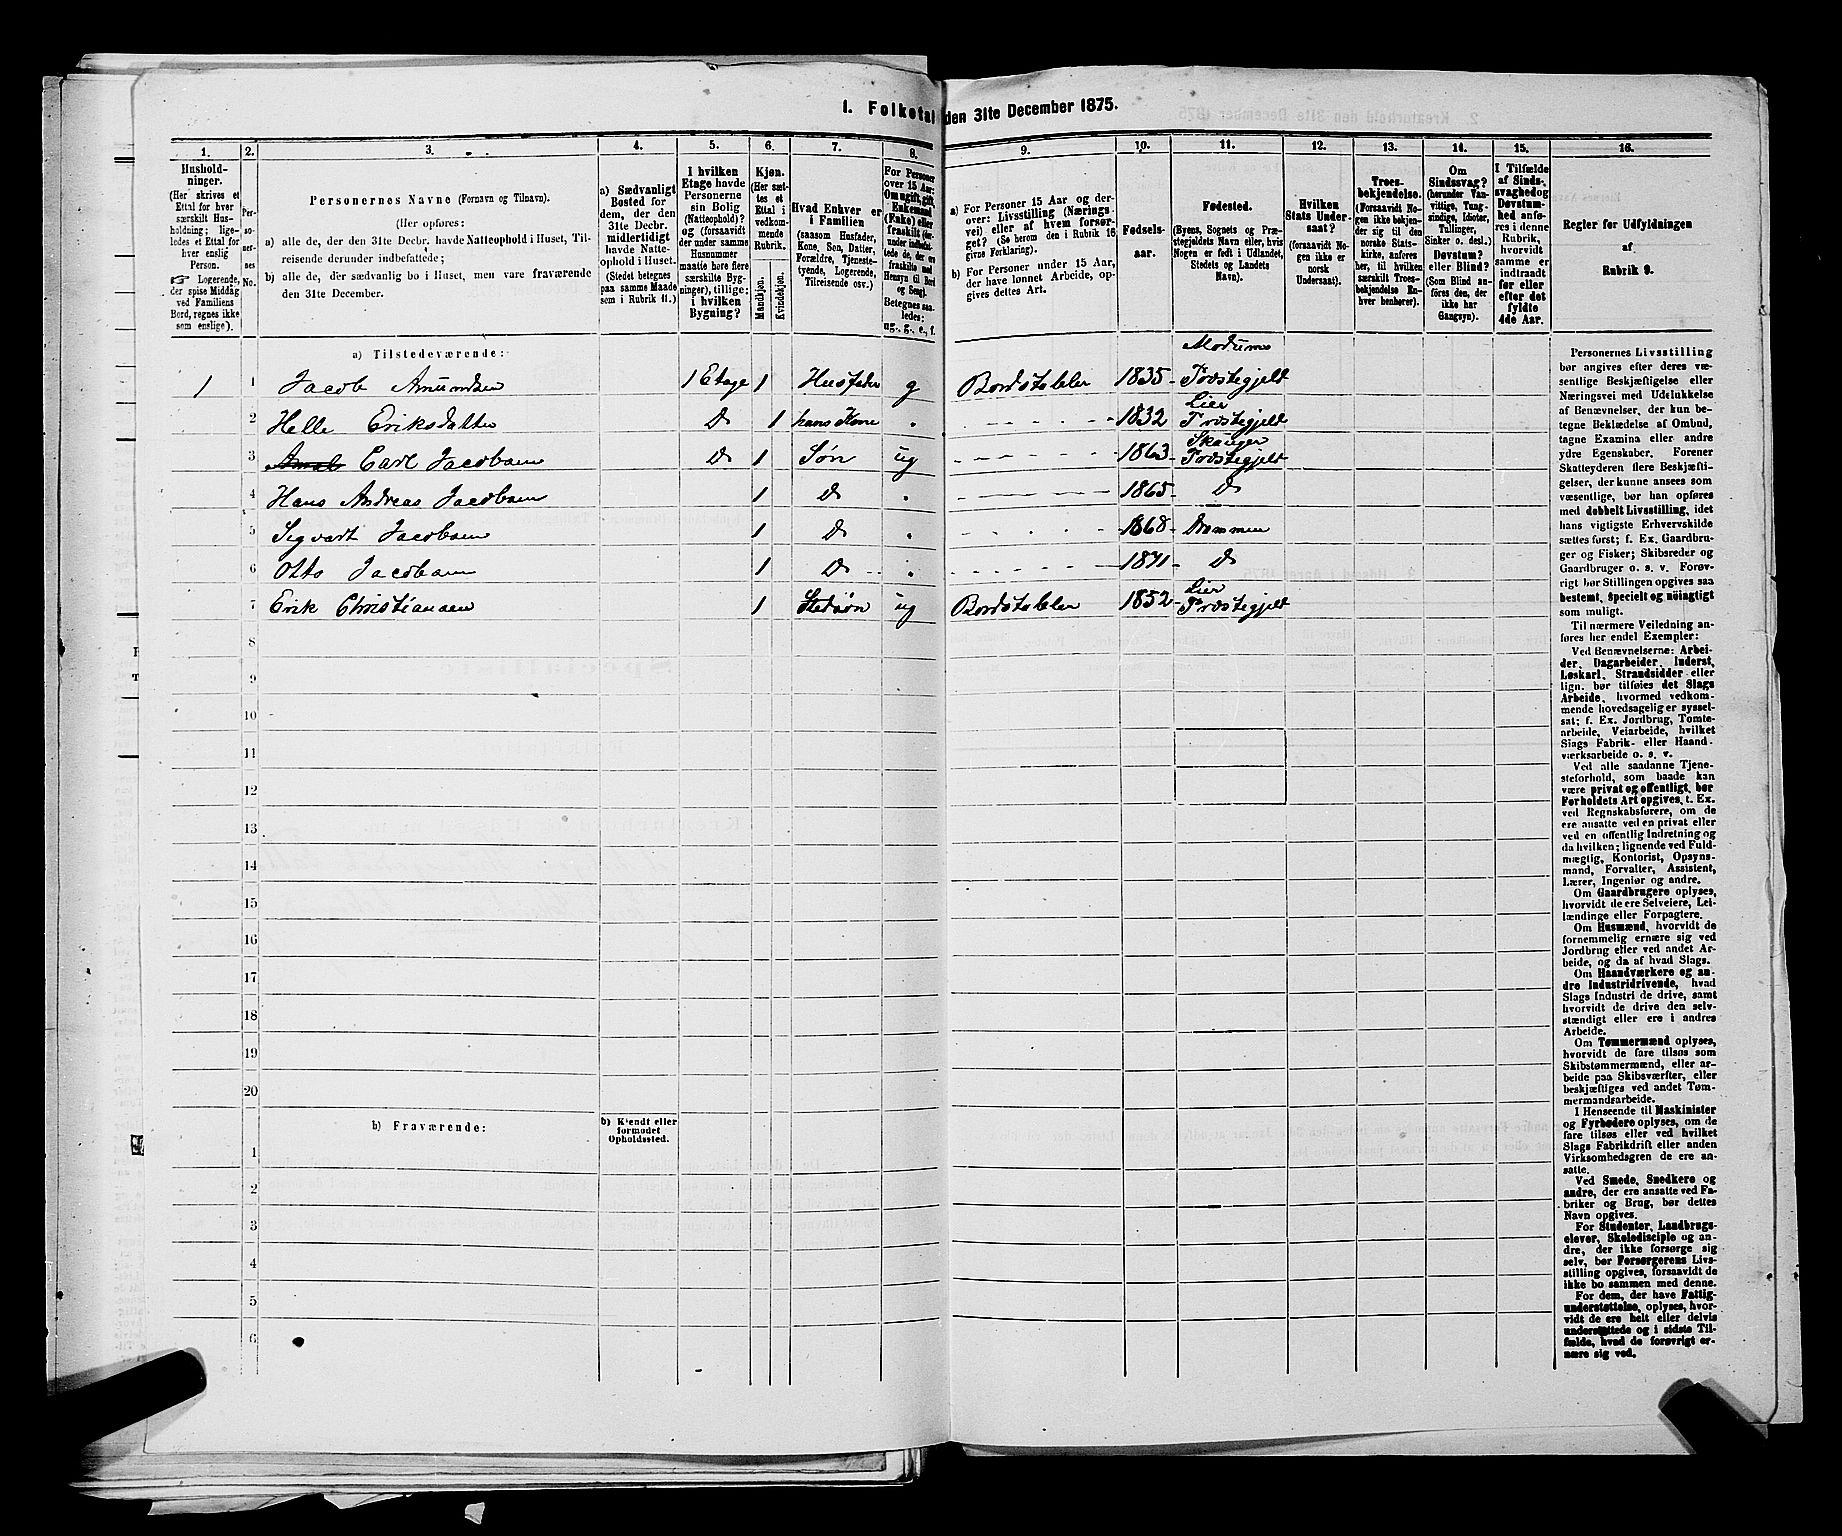 1. Folketal den 31te December 1875.
1. 2. 3. 4. 5. 6. 7. 8. 9. 10. 11. 12. 13. 14. 15. 16.
Hushold-
ninger.
(Her skrives et
Ettal for hver
særskilt Hus-
holdning; lige-
ledes et Ettal for
hver enslig
Person.
☞ Logerende,
der spise Middag
ved Familiens
Bord, regnes ikke
som enslige).
Per-
so-
ner-
nes
No.
Personernes Navne (Fornavn og Tilnavn).
(Her opføres:
a) alle de, der den 31te Decbr. havde Natteophold i Huset, Til-
reisende derunder indbefattede;
b) alle de, der sædvanlig bo i Huset, men vare fraværende
den 31te December.
a) Sædvanligt
Bosted for
dem, der den
31te Decbr.
midlertidigt
havde Natte-
ophold i Huset.
(Stedet betegnes
paa samme Maade
som i Rubrik 11.)
I hvilken
Etage havde
Personerne
sin Bolig
(Natteophold)?
og (forsaavidt
der under samme
Husnummer
maatte høre flere
særskilte Byg-
ninger), tillige:
i hvilken
Bygning?
Kjøn.
(Her sæt-
tes et
Ettal i
vedkom-
mende
Rubrik.
Mandkjøn.
Kvindekjøn.
Hvad Enhver er
i Familien
(saasom Husfader,
Kone, Søn, Datter,
Forældre, Tjeneste-
tyende, Logerende,
Tilreisende osv.)
For Personer
over 15 Aar:
Om ugift, gift,
Enkemand
(Enke) eller
fraskilt for-
under indbefat-
tede de, der ere
fraskilte med
Hensyn til Bord
og Seng).
Betegnes saa-
ledes:
ug., g., e., f.
a) For Personer 15 Aar og der-
over: Livsstilling (Nærings-
vei) eller af hvem forsør-
get? (Se herom den i Rubrik 16
givne Forklaring).
b) For Personer under 15 Aar,
der have lønnet Arbeide, op-
gives dettes Art.
Fødsels-
aar.
Fødested.
(Byens, Sognets og Præ-
stegjeldets Navn eller, hvis
Nogen er født i Udlandet,
Stedets og Landets
Navn).
Hvilken
Stats Under-
saat?
(forsaavidt No-
gen ikke er
norsk
Undersaat).
Troes-
bekjendelse.
(Forsaavidt No-
gen ikke bekjen-
der sig til den
norske Stats-
kirke, anføres
her, til hvilken
særskilt Troes-
bekjendelse En-
hver henhører).
Om
Sindssvag?
(herunder Van-
vittige, Tung-
sindige, Idioter,
Tullinger,
Sinker o. desl.)
Døvstum?
eller Blind?
(Som Blind an-
føres den, der
ikke har
Gangsyn).
I Tilfælde
af Sinds-
svaghed og
Døvstum-
hed anfø-
res i denne
Rubrik,
hvorvidt
samme er
indtraadt
før eller
efter det
fyldte
4de Aar.
Regler for Udfyldningen
af
Rubrik 9.
a) Tilstedeværende:
1 1 Jacob Amundsen 1 Etage 1 Husfader g Bordstabler 1835 Modums Præstegjeld
2 Helle Eriksdatter Do 1 hans Kone " 1832 Lier Præstegjeld
3 Carl Jacobsen Do 1 Søn ug 1863 Skauger Præstegjeld
4 Hans Andreas Jacobsen 1 Do " 1865 Do
5 Sigvart Jacobsen 1 Do " 1868 Drammen
6 Otto Jacobsen 1 Do " 1871 Do
7 Erik Christiansen 1 Stedsøn ug Bordstabler 1852 Lier Præstegjeld
8
9
10
11
12
13
14
15
16
17
18
19
20
b) Fraværende:
b) Kjendt eller
formodet
Opholdssted.
1
2
3
4
5
6
Personernes Livsstilling
bør angives efter deres væ-
sentlige Beskjæftigelse eller
Næringsvei med Udelukkelse
af Benævnelser, der kun be-
tegne Beklædelse af Ombud,
tagne Examina eller andre
ydre Egenskaber. Forener
Skatteyderen flere Beskjæfti-
gelser, der kunne ansees som
væsentlige, bør han opføres
med dobbelt Livsstilling, idet
hans vigtigste Erhvervskilde
sættes først; f. Ex. Gaardbru-
ger og Fisker; Skibsreder og
Gaardbruger o. s. v. Forøv-
rigt bør Stillingen opgives saa
bestemt, specielt og nöiagtigt
som muligt.
Til nærmere Veiledning an-
føres her endel Exempler:
Ved Benævnelserne: Arbei-
der, Dagarbeider, Inderst,
Løskarl, Strandsidder eller
lign. bør tilføies det Slags
Arbeide, hvormed vedkom-
mende hovedsagelig er syssel-
sat; f. Ex. Jordbrug, Tomte-
arbeide, Veiarbeide, hvilket
Slags Fabrik- eller Haand-
værksarbeide o. s. v.
Ved alle saadanne Tjene-
steforhold, som baade kan
være privat og offentligt, bør
Forholdets Art opgives, t. Ex.
ved Regnskabsførere, om de
ere ansatte ved en privat eller
ved en offentlig Indretning og
da hvilken; lignende ved Fuld-
mægtig, Kontorist, Opsyns-
mand, Forvalter, Assistent,
Lærer, Ingeniør og andre.
Om Gaardbrugere oplyses,
hvorvidt de ere Selveiere, Lei-
lændinge eller Forpagtere.
Om Husmænd, hvorvidt de
fornemmelig ernære sig ved
Jordbrug eller ved andet Ar-
beide, og da af hvad Slags.
Om Haandværkere og an-
dre Industridrivende, hvad
Slags Industri de drive, samt
hvorvidt de drive den selv-
stændigt eller ere i andres
Arbeide.
Om Tømmermænd oplyses,
hvorvidt de fare tilsøs som
Skibstømmermænd, eller ar-
beide paa Skibsværfter, eller
beskjæftiges ved andet Tøm-
mermandsarbeide.
I Henseende til Maskinister
og Fyrbødere oplyses, om de
fare tilsøs eller ved hvilket
Slags Fabrikdrift eller anden
Virksomhedsgren de ere an-
satte.
Ved Smede, Snedkere og
andre, der ere ansatte ved Fa-
briker og Brug, bør dettes
Navn opgives.
For Studenter, Landbrugs-
elever, Skoledisciple og an-
dre, der ikke forsørge sig
selv, bør Forsørgerens Livs-
stilling opgives, forsaavidt de
ikke bo sammen med denne.
For dem, der have Fattig-
understøttelse, oplyses, hvor-
vidt de ere helt eller delvis
understøttede og i sidste Til-
fælde, hvad de forøvrigt er-
nære sig ved.